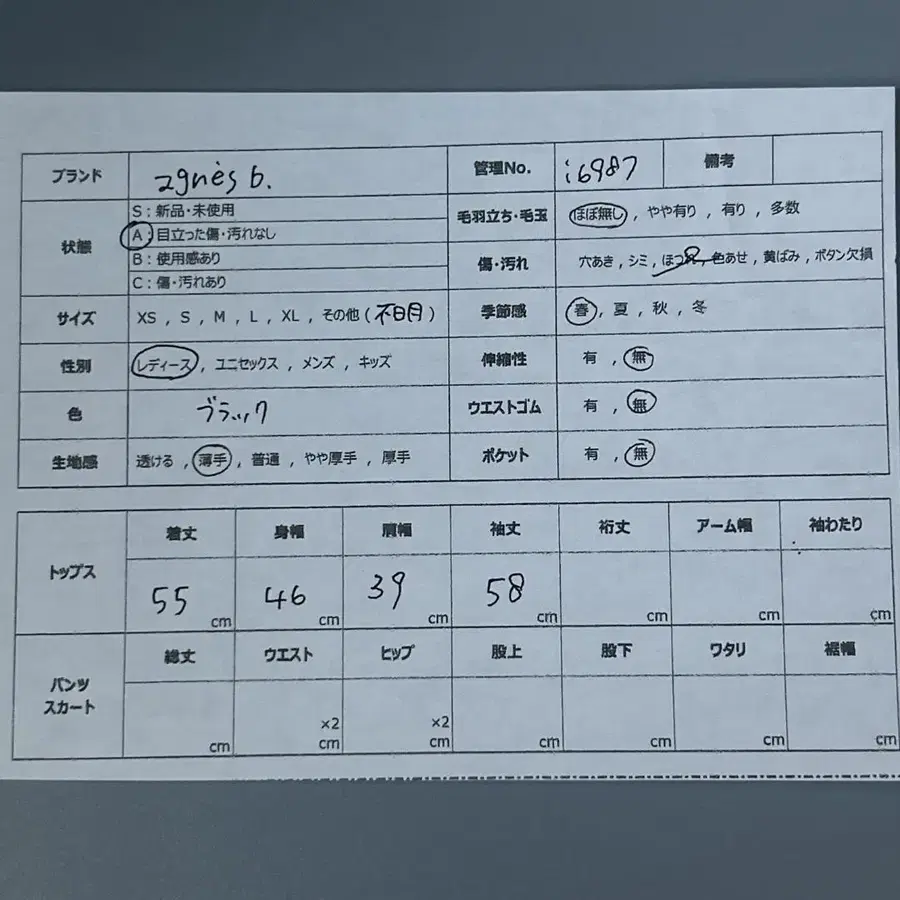 ブランド agnès b. 管理No. i6987 備考
状態 S：新品・未使用
A：目立った傷・汚れなし
B：使用感あり
C：傷・汚れあり
毛羽立ち・毛玉 ほぼ無し , やや有り , 有り , 多数
傷・汚れ 穴あき , シミ , ほつれ , 色あせ , 黄ばみ , ボタン欠損
サイズ XS , S , M , L , XL , その他 ( 不明 )
季節感 春 , 夏 , 秋 , 冬
性別 レディース , ユニセックス , メンズ , キッズ
伸縮性 有 , 無
色 ブラック
ウエストゴム 有 , 無
生地感 透ける , 薄手 , 普通 , やや厚手 , 厚手
ポケット 有 , 無
トップス 着丈 身幅 肩幅 袖丈 裄丈 アーム幅 袖わたり
55 cm 46 cm 39 cm 58 cm cm cm cm
パンツ
スカート
総丈 ウエスト ヒップ 股上 股下 ワタリ 裾幅
×2 ×2
cm cm cm cm cm cm cm